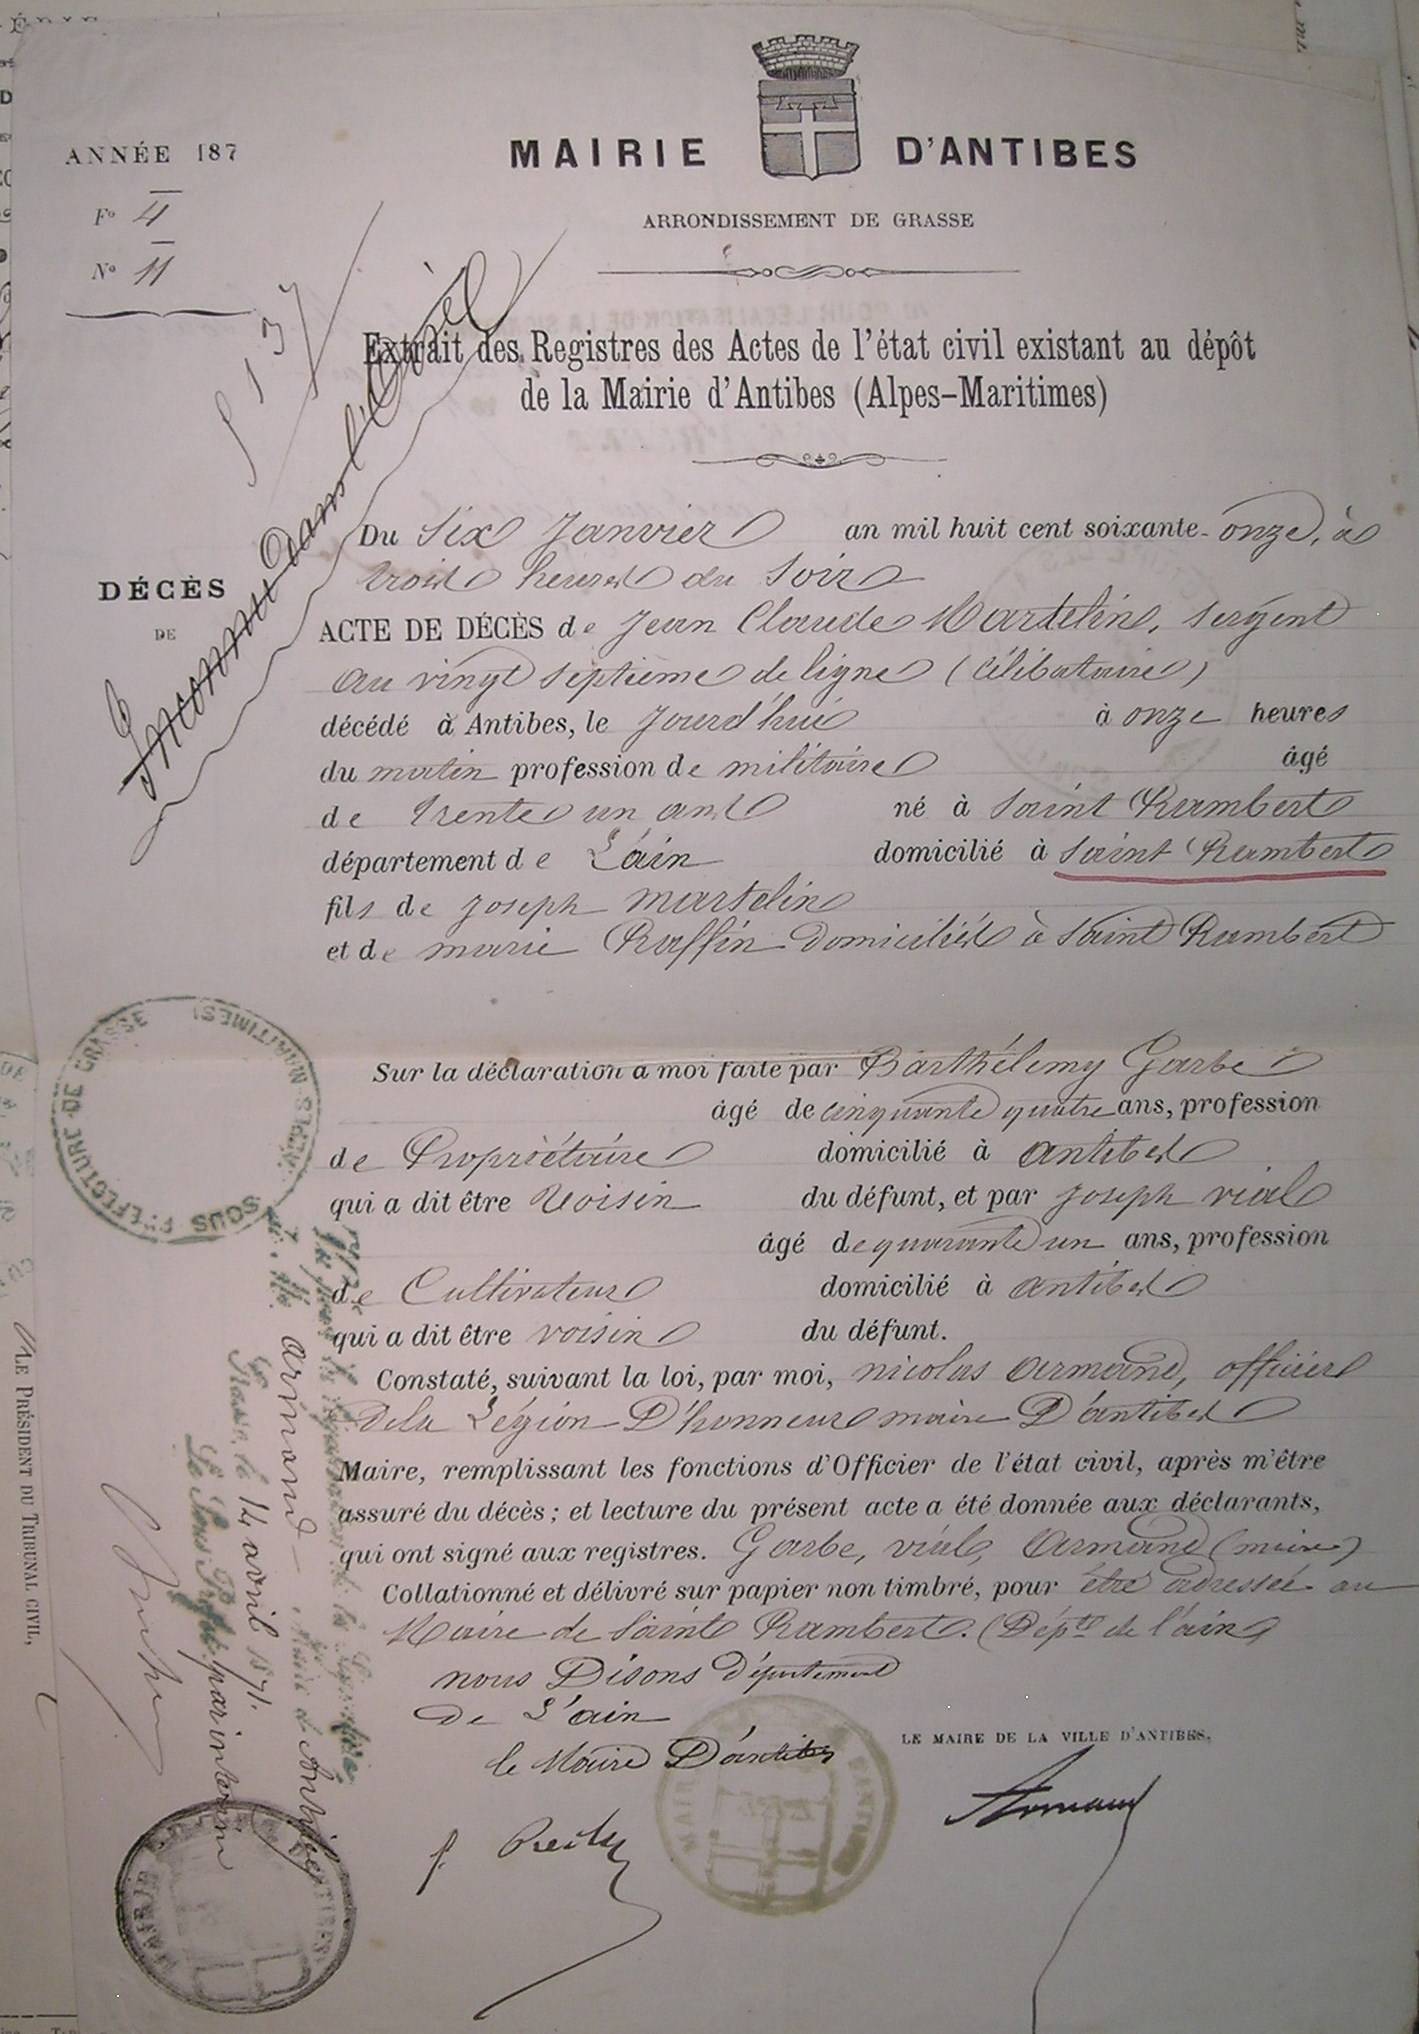 ANNÉE 187
F° 4
N° 11
MAIRIE D'ANTIBES
ARRONDISSEMENT DE GRASSE
Extrait des Registres des Actes de l'état civil existant au dépôt
de la Mairie d'Antibes (Alpes-Maritimes)
Inconnu dans l'
DÉCÈS
DE
Du Six Janvier an mil huit cent soixante-onze, à
trois heures du Soir
ACTE DE DÉCÈS de Jean Claude Martelin, Sergent
au vingt septieme de ligne (célibataire)
décédé à Antibes, le jourd'hui à onze heures
du matin profession de militaire âgé
de trente un ans né à Saint Rambert
département de L'ain domicilié à Saint Rambert
fils de joseph martelin
et de marie Raffin domiciliés à Saint Rambert
SOUS PRÉFECTURE DE GRASSE (ALPES MARITIMES)
Sur la déclaration a moi faite par Barthélemy Garbe
âgé de cinquante quatre ans, profession
de Propriétaire domicilié à antibes
qui a dit être Voisin du défunt, et par joseph vial
âgé de quarante un ans, profession
de Cultivateur domicilié à antibes
qui a dit être voisin du défunt.
Constaté, suivant la loi, par moi, nicolas armand, officier
de la Légion D'honneur maire D'antibes
Maire, remplissant les fonctions d'Officier de l'état civil, après m'être
assuré du décès; et lecture du présent acte a été donnée aux déclarants,
qui ont signé aux registres. Garbe, vial, Armand (maire)
Collationné et délivré sur papier non timbré, pour être adressé au
Maire de Saint Rambert. (Dépt de l'ain)
nous Disons département
de L'ain
le Maire D'antibes
LE MAIRE DE LA VILLE D'ANTIBES,
Armand
MAIRIE D'ANTIBES
armand Maire d'Antibes
Grasse, le 14 avril 1871.
Le Sous Préfet par interim
MAIRIE D'ANTIBES
LE PRÉSIDENT DU TRIBUNAL CIVIL,